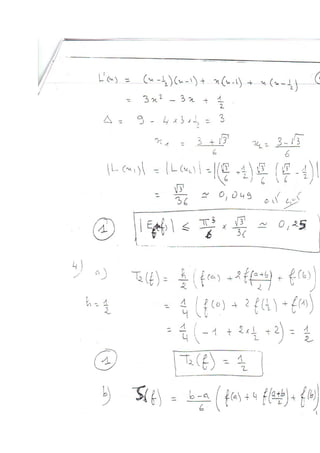 L'(x) = (x-½)(x-1) + x(x-1) + x(x-½)
= 3x² - 3x + ½
Δ = 9 - 4×3×½ = 3
x₁ = (3+√3)/6    x₂ = (3-√3)/6
|L(x₁)| = |L(x₂)| = |(√3/6 + ½) √3/6 (√3/6 - ½)|
= √3/36 ≃ 0,049
① |E(f)| ≤ π³/6 × √3/36 ≃ 0,25
4) a) T₂(f) = h/2 (f(a) + 2f((a+b)/2) + f(b))
h = ½    = ¼ (f(0) + 2f(½) + f(1))
= ¼ (-1 + 2×½ + 2) = ½
① T₂(f) = ½
b) S(f) = (b-a)/6 (f(a) + 4f((a+b)/2) + f(b))